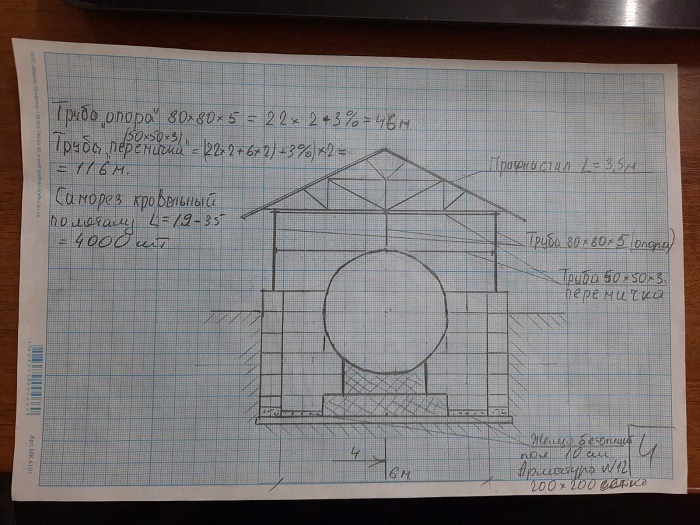 Труба „опора" 80×80×5 = 22 × 2 + 3% = 46 м
(50×50×3)
Труба „перемичка" = (22×2+6×2)+3%)×2 =
= 116 м.
Саморез кровельный
по металу L = 19-35
= 4000 шт
Профнастил L = 3,5 м
Труба 80×80×5 (опора)
Труба 50×50×3.
перемичка
пол 10 см
Арматура №12
200×200
4
6м
4
Арт. МК 4101